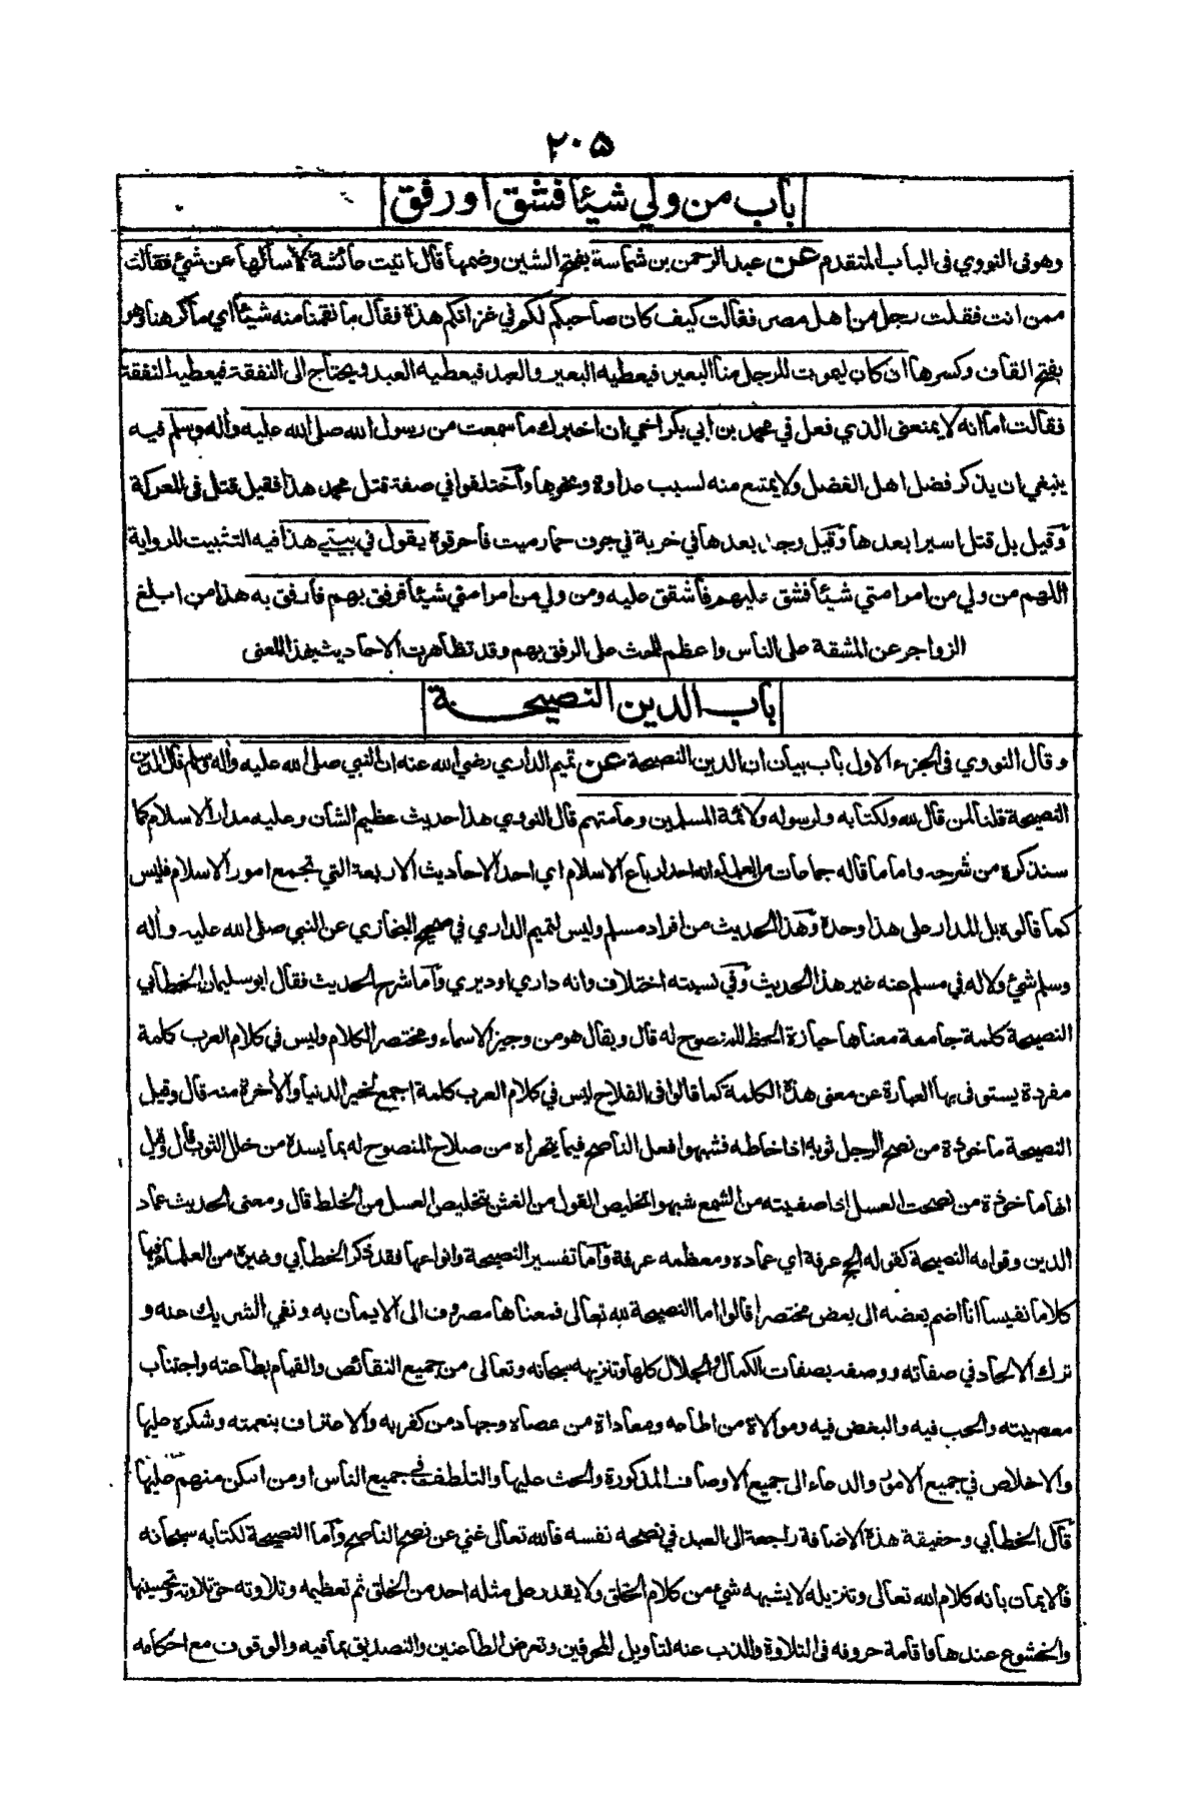 ٢٠٥
باب من ولي شيئا فشق او رفق
وهو فى النووي فى الباب المتقدم عن عبد الرحمن بن شماسة بفتح الشين وضمها قال اتيت عائشة لاسألها عن شيئ فقالت
ممن انت فقلت رجل من اهل مصر فقالت كيف كان صاحبكم لكم في غزاتكم هذه فقال ما نقمنا منه شيئا اي ما كرهنا وهو
بفتح القاف وكسرها ان كان ليموت للرجل منا البعير فيعطيه البعير والعبد فيعطيه العبد ويحتاج الى النفقة فيعطيه النفقة
فقالت اما انه لا يمنعنى الذي فعل في محمد بن ابي بكر اخي ان اخبرك ما سمعت من رسول الله صلى الله عليه وأله وسلم فيه
ينبغي ان يذكر فضل اهل الفضل ولا يمتنع منه لسبب عداوة ونحوها وأختلفوا في صفة قتل محمد هذا فقيل قتل فى المعركة
وقيل بل قتل اسيرا بعدها وقيل وجد بعدها في خربة في جوف حمار ميت فاحرقوه يقول في بيتي هذا فيه التثبيت للرواية
اللهم من ولي من امر امتي شيئا فشق عليهم فاشقق عليه ومن ولي من امر امتي شيئا فرفق بهم فارفق به هذا من ابلغ
الزواجر عن المشقة على الناس واعظم الحث على الرفق بهم وقد تظاهرت الاحاديث بهذا المعنى
باب الدين النصيحة
وقال النووي فى الجزء الاول باب بيان ان الدين النصيحة عن تميم الداري رضي الله عنه ان النبي صلى الله عليه وأله وسلم قال الدين
النصيحة قلنا لمن قال لله ولكتابه ولرسوله ولائمة المسلمين وعامتهم قال النووي هذا حديث عظيم الشان وعليه مدار الاسلام كما
سنذكره من شرحه واما ما قاله جماعات من العلماء انه احد ارباع الاسلام اي احد الاحاديث الاربعة التي تجمع امور الاسلام فليس
كما قالوه بل المدار على هذا وحده وهذا الحديث من افراد مسلم وليس لتميم الداري في صحيح البخاري عن النبي صلى الله عليه وأله
وسلم شئ ولا له في مسلم عنه غير هذا الحديث وفي نسبته اختلاف وانه داري او ديري وأما شرح الحديث فقال ابو سليمان الخطابي
النصيحة كلمة جامعة معناها حيازة الحظ للمنصوح له قال ويقال هو من وجيز الاسماء ومختصر الكلام وليس في كلام العرب كلمة
مفردة يستوفى بها العبارة عن معنى هذه الكلمة كما قالوا فى الفلاح ليس في كلام العرب كلمة اجمع لخير الدنيا والأخرة منه قال وقيل
النصيحة ماخوذة من نصح الرجل ثوبه اذا خاطه فشبهوا فعل الناصح فيما يتحراه من صلاح المنصوح له بما يسده من خلل الثوب قال وقيل
انها ماخوذة من نصحت العسل اذا صفيته من الشمع شبهوا تخليص القول من الغش بتخليص العسل من الخلط قال ومعنى الحديث عماد
الدين وقوامه النصيحة كقوله الحج عرفة اي عماده ومعظمه عرفة وأما تفسير النصيحة وانواعها فقد ذكر الخطابي وغيره من العلماء فيها
كلاما نفيسا انا اضم بعضه الى بعض مختصرا قالوا اما النصيحة لله تعالى فمعناها مصروف الى الايمان به ونفي الشريك عنه و
ترك الالحاد في صفاته ووصفه بصفات الكمال والجلال كلها وتنزيهه سبحانه وتعالى من جميع النقائص والقيام بطاعته واجتناب
معصيته والحب فيه والبغض فيه وموالاة من اطاعه ومعاداة من عصاه وجهاد من كفر به والاعتراف بنعمته وشكره عليها
والاخلاص في جميع الامور والدعاء الى جميع الاوصاف المذكورة والحث عليها والتلطف في جميع الناس او من امكن منهم عليها
قال الخطابي وحقيقة هذه الاضافة راجعة الى العبد في نصحه نفسه فالله تعالى غني عن نصح الناصح وأما النصيحة لكتابه سبحانه
فالايمان بانه كلام الله تعالى وتنزيله لا يشبهه شئ من كلام الخلق ولا يقدر على مثله احد من الخلق ثم تعظيمه وتلاوته حق تلاوته وتحسينها
والخشوع عندها واقامة حروفه فى التلاوة والذب عنه لتاويل المحرفين وتعرض الطاعنين والتصديق بما فيه والوقوف مع احكامه